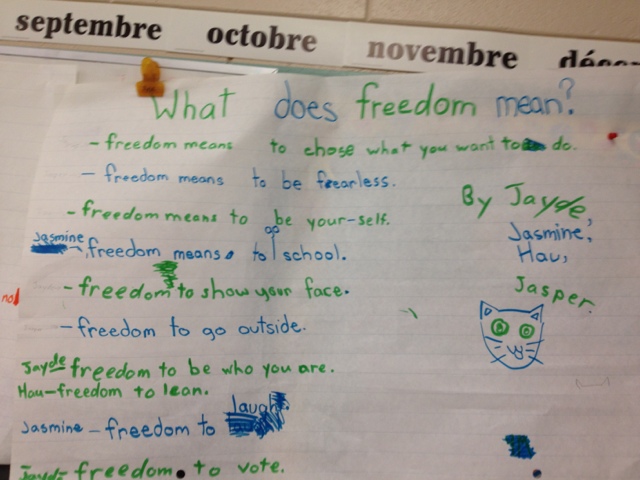 septembre octobre novembre
What does freedom mean?
- freedom means to chose what you want to do.
- freedom means to be fearless.
- freedom means to be your-self.
Jasmine - freedom means to go school.
- freedom to show your face.
no!
- freedom to go outside.
Jayde freedom to be who you are.
Hau-freedom to lean.
Jasmine - freedom to laugh.
Jayde freedom. to vote.
By Jayde,
Jasmine,
Hau,
Jasper.